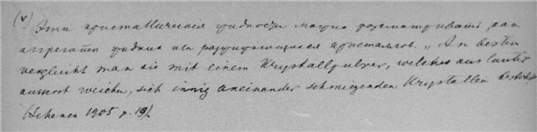 (v) Эти кристаллическия жидкости можно рассматривать как
агрегаты жидких или кристаллов. „Am besten
vergleicht man sie mit einem Krystallpulver, welches aus lauter
weichen, sich innig aneinander schmiegenden Krystallen besteht
(Schenck 1905 p.